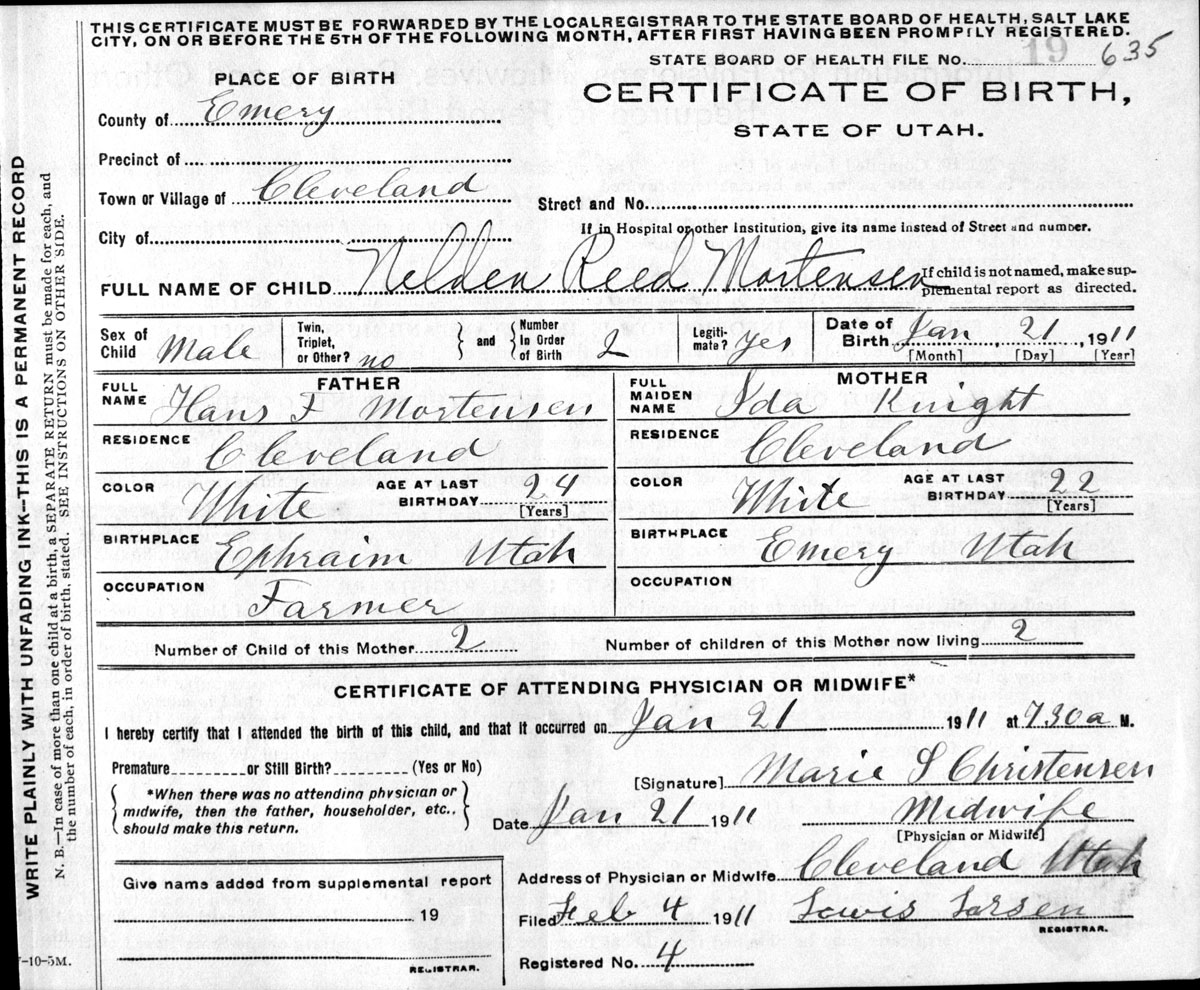 THIS CERTIFICATE MUST BE FORWARDED BY THE LOCALREGISTRAR TO THE STATE BOARD OF HEALTH, SALT LAKE
CITY, ON OR BEFORE THE 5TH OF THE FOLLOWING MONTH, AFTER FIRST HAVING BEEN PROMPLY REGISTERED.
STATE BOARD OF HEALTH FILE No. 19 635
PLACE OF BIRTH
CERTIFICATE OF BIRTH,
STATE OF UTAH.
County of Emery
Precinct of
Town or Village of Cleveland
Street and No.
City of
If in Hospital or other Institution, give its name instead of Street and number.
FULL NAME OF CHILD Nelden Reed Mortensen
If child is not named, make sup-
plemental report as directed.
Sex of Child Male
Twin, Triplet, or Other? no
and
Number In Order of Birth 2
Legiti-mate? Yes
Date of Birth Jan, 21, 1911
[Month] [Day] [Year]
FATHER
FULL NAME Hans F Mortensen
RESIDENCE Cleveland
COLOR White
AGE AT LAST BIRTHDAY 24
[Years]
BIRTHPLACE Ephraim Utah
OCCUPATION Farmer
MOTHER
FULL MAIDEN NAME Ida Knight
RESIDENCE Cleveland
COLOR White
AGE AT LAST BIRTHDAY 22
[Years]
BIRTHPLACE Emery Utah
OCCUPATION
Number of Child of this Mother 2
Number of children of this Mother now living 2
CERTIFICATE OF ATTENDING PHYSICIAN OR MIDWIFE*
I hereby certify that I attended the birth of this child, and that it occurred on Jan 21 1911 at 730a M.
Premature or Still Birth? (Yes or No)
[Signature] Marie S Christensen
*When there was no attending physician or
midwife, then the father, householder, etc.,
should make this return.
Date Jan 21 1911
Midwife
[Physician or Midwife]
Address of Physician or Midwife Cleveland Utah
Give name added from supplemental report
19
REGISTRAR.
Filed Feb 4 1911 Lowis Larsen
REGISTRAR.
Registered No. 4
WRITE PLAINLY WITH UNFADING INK--THIS IS A PERMANENT RECORD
N. B.--In case of more than one child at a birth, a SEPARATE RETURN must be made for each, and
the number of each, in order of birth, stated. SEE INSTRUCTIONS ON OTHER SIDE.
-10-5M.